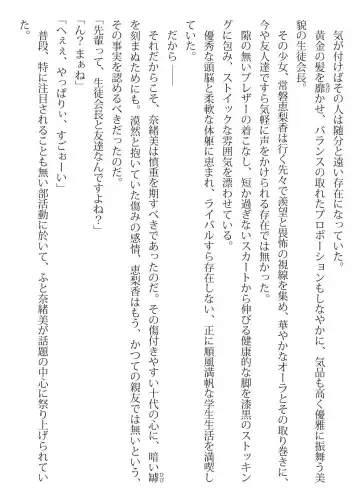 気が付けばその人は随分と遠い存在になっていた。
黄金の髪を靡かせ、バランスの取れたプロポーションもしなやかに、気品も高く優雅に振舞う美
貌の生徒会長。
その少女、常磐恵梨香は行く先々で羨望と畏怖の視線を集め、華やかなオーラとその取り巻きに、
今や友人達ですら気軽に声をかけられる存在では無かった。
隙の無いブレザーの着こなし、短か過ぎないスカートから伸びる健康的な脚を漆黒のストッキン
グに包み、ストイックな雰囲気を漂わせている。
優秀な頭脳と柔軟な体躯に恵まれ、ライバルすら存在しない、正に順風満帆な学生生活を満喫し
ていた。
だから――
それだからこそ、奈緒美は慎重を期すべきであったのだ。その傷付きやすい十代の心に、暗い罅
を刻まぬためにも。漠然と抱いていた傷みの感情、恵梨香はもう、かつての親友では無いという、
その事実を認めるべきだったのだ。
「先輩って、生徒会長と友達なんですよね？」
「ん？まぁね」
「へぇぇ、やっぱりぃ、すごぉーい」
普段、特に注目されることも無い部活動に於いて、ふと奈緒美が話題の中心に祭り上げられてい
た。